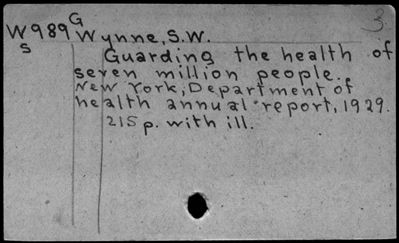 G
W989 Wynne, S.W. 3.
S
Guarding the health of
seven million people.
New York, Department of
health annual report, 1929.
215 p. with ill.